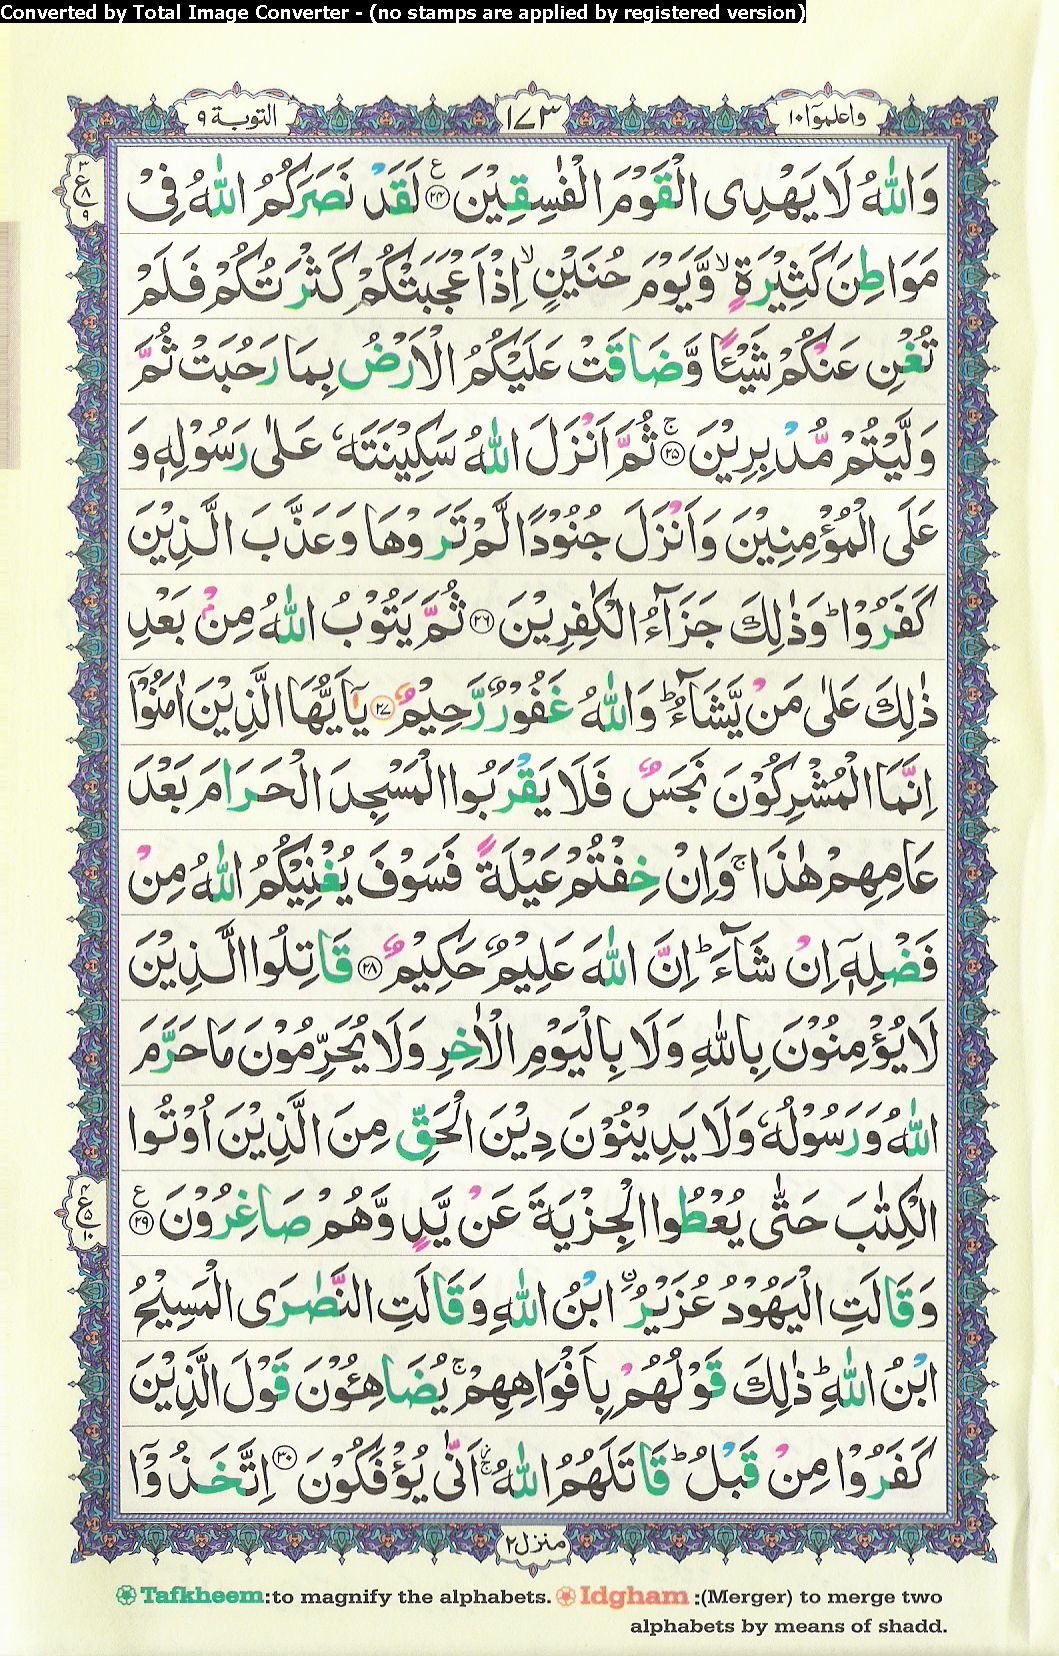 Converted by Total Image Converter - (no stamps are applied by registered version)
واعلموٓا ١٠
١٧٣
التوبة ٩
وَاللّٰهُ لَا يَهْدِى الْقَوْمَ الْفٰسِقِيْنَ ﴿٢٤﴾ لَقَدْ نَصَرَكُمُ اللّٰهُ فِىْ
مَوَاطِنَ كَثِيْرَةٍ ۙ وَّيَوْمَ حُنَيْنٍ ۙ اِذْ اَعْجَبَتْكُمْ كَثْرَتُكُمْ فَلَمْ
تُغْنِ عَنْكُمْ شَيْـًٔا وَّضَاقَتْ عَلَيْكُمُ الْاَرْضُ بِمَا رَحُبَتْ ثُمَّ
وَلَّيْتُمْ مُّدْبِرِيْنَ ۚ ﴿٢٥﴾ ثُمَّ اَنْزَلَ اللّٰهُ سَكِيْنَتَهٗ عَلٰى رَسُوْلِهٖ وَ
عَلَى الْمُؤْمِنِيْنَ وَاَنْزَلَ جُنُوْدًا لَّمْ تَرَوْهَا وَعَذَّبَ الَّذِيْنَ
كَفَرُوْا ؕ وَذٰلِكَ جَزَآءُ الْكٰفِرِيْنَ ﴿٢٦﴾ ثُمَّ يَتُوْبُ اللّٰهُ مِنْۢ بَعْدِ
ذٰلِكَ عَلٰى مَنْ يَّشَآءُ ؕ وَاللّٰهُ غَفُوْرٌ رَّحِيْمٌ ﴿٢٧﴾ يٰٓاَيُّهَا الَّذِيْنَ اٰمَنُوْٓا
اِنَّمَا الْمُشْرِكُوْنَ نَجَسٌ فَلَا يَقْرَبُوا الْمَسْجِدَ الْحَرَامَ بَعْدَ
عَامِهِمْ هٰذَا ۚ وَاِنْ خِفْتُمْ عَيْلَةً فَسَوْفَ يُغْنِيْكُمُ اللّٰهُ مِنْ
فَضْلِهٖٓ اِنْ شَآءَ ؕ اِنَّ اللّٰهَ عَلِيْمٌ حَكِيْمٌ ﴿٢٨﴾ قَاتِلُوا الَّذِيْنَ
لَا يُؤْمِنُوْنَ بِاللّٰهِ وَلَا بِالْيَوْمِ الْاٰخِرِ وَلَا يُحَرِّمُوْنَ مَا حَرَّمَ
اللّٰهُ وَرَسُوْلُهٗ وَلَا يَدِيْنُوْنَ دِيْنَ الْحَقِّ مِنَ الَّذِيْنَ اُوْتُوا
الْكِتٰبَ حَتّٰى يُعْطُوا الْجِزْيَةَ عَنْ يَّدٍ وَّهُمْ صَاغِرُوْنَ ﴿٢٩﴾
وَقَالَتِ الْيَهُوْدُ عُزَيْرُ ۨابْنُ اللّٰهِ وَقَالَتِ النَّصٰرَى الْمَسِيْحُ
ابْنُ اللّٰهِ ؕ ذٰلِكَ قَوْلُهُمْ بِاَفْوَاهِهِمْ ۚ يُضَاهِئُوْنَ قَوْلَ الَّذِيْنَ
كَفَرُوْا مِنْ قَبْلُ ؕ قَاتَلَهُمُ اللّٰهُ ۚ اَنّٰى يُؤْفَكُوْنَ ﴿٣٠﴾ اِتَّخَذُوْٓا
منزل ٢
Tafkheem:to magnify the alphabets. Idgham :(Merger) to merge two
alphabets by means of shadd.